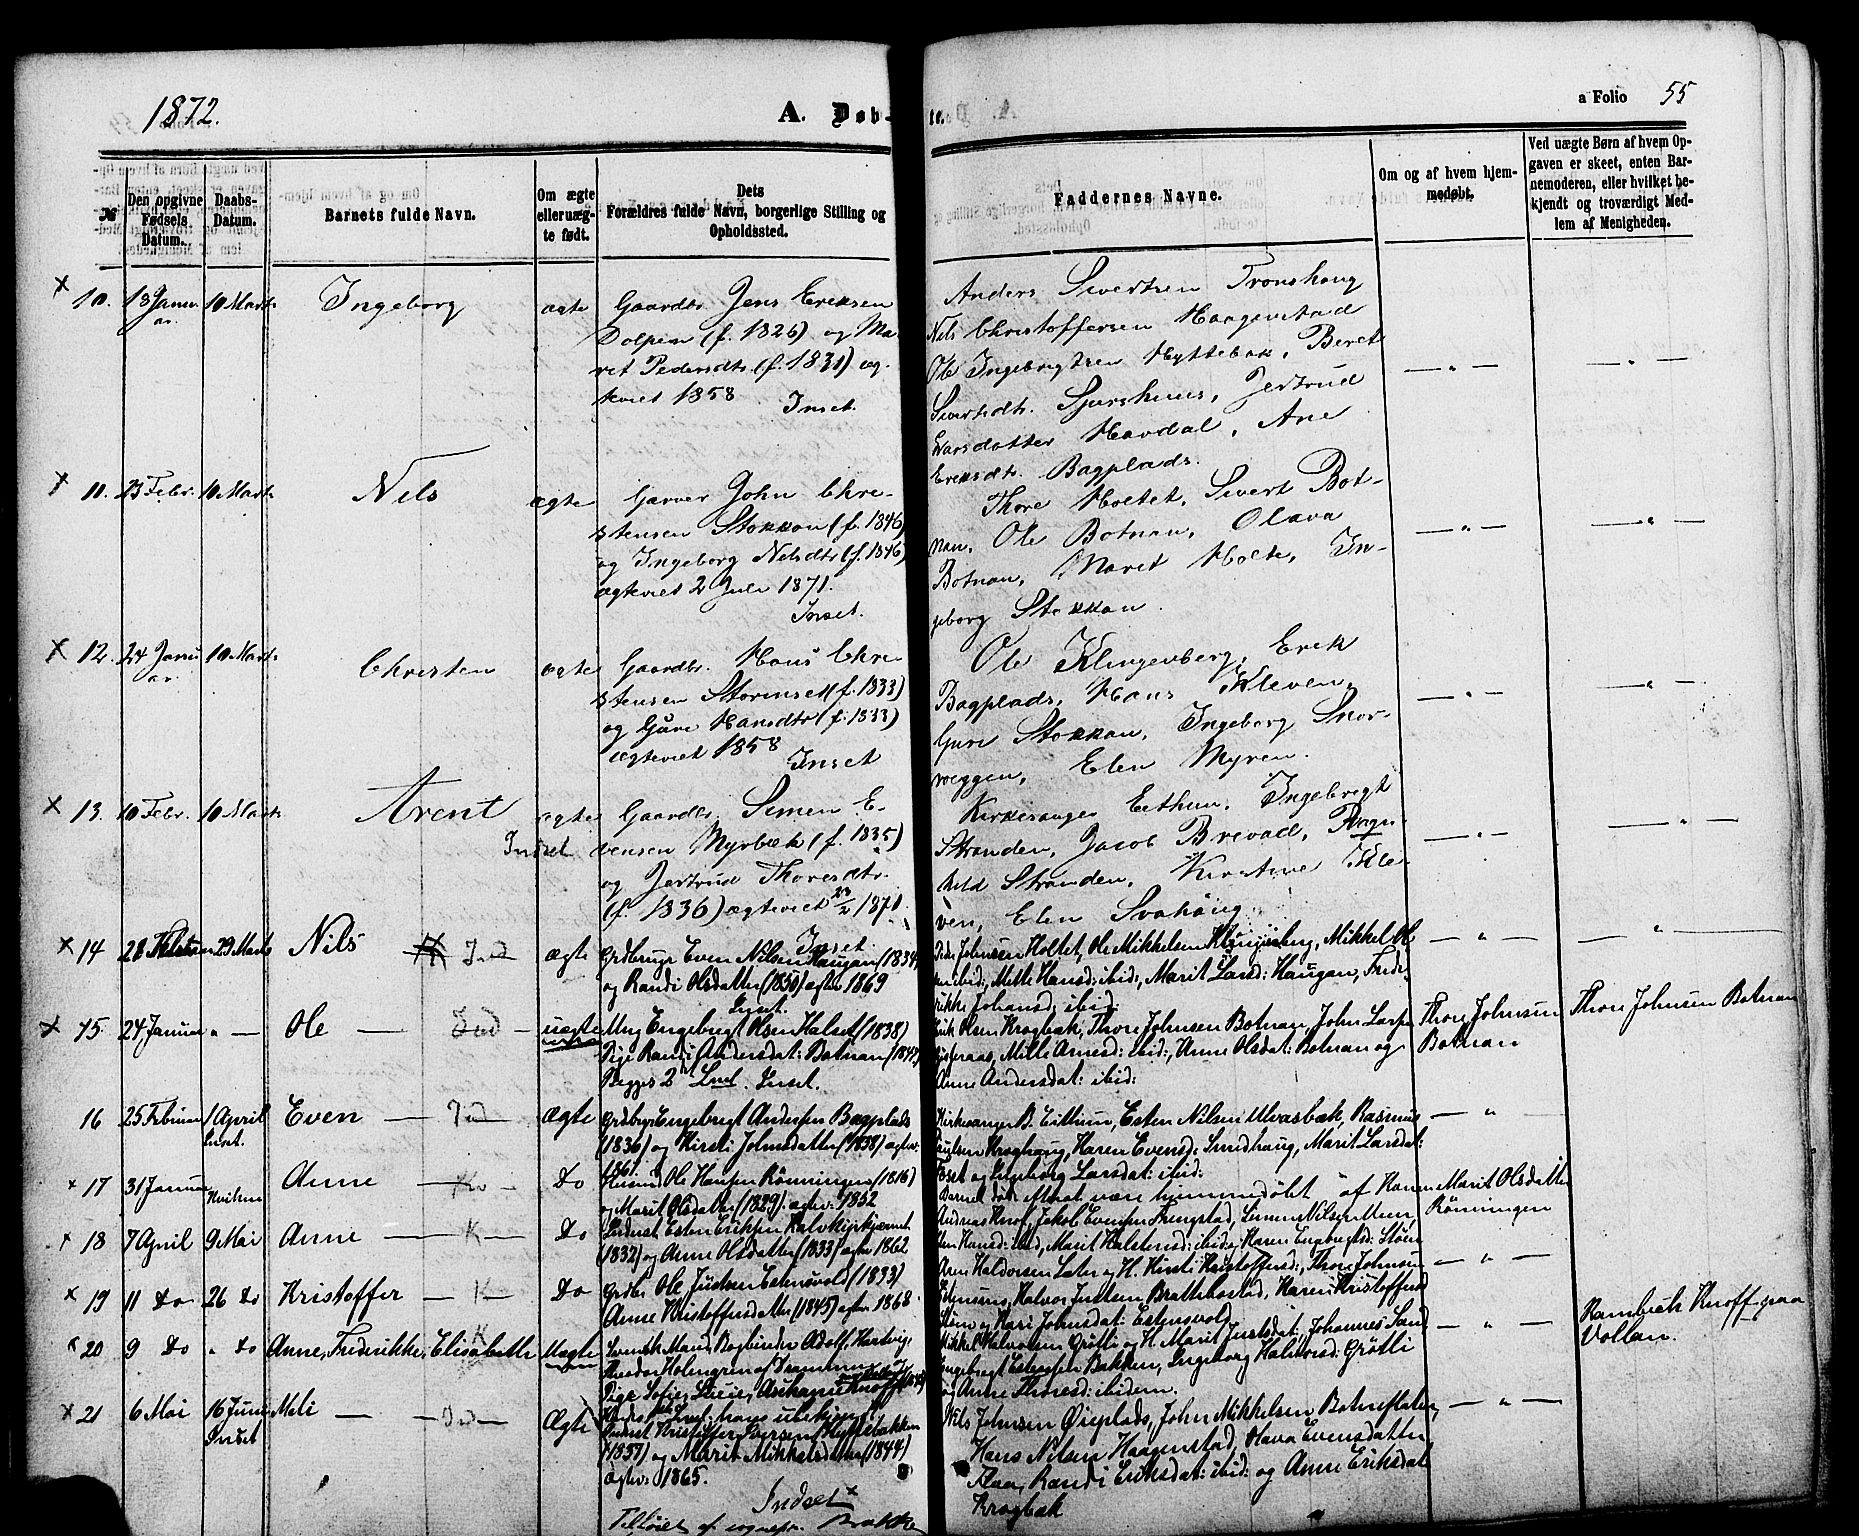 1872.
A. Døb-
te.
a Folio 55
№
Den opgivne Fødsels Datum.
Daabs-Datum.
Barnets fulde Navn.
Om ægte eller uægte født.
Dets Forældres fulde Navn, borgerlige Stilling og Opholdssted.
Faddernes Navne.
Om og af hvem hjemmedøbt.
Ved uægte Børn af hvem Opgaven er skeet, enten Barnemoderen, eller hvilket bekjendt og troværdigt Medlem af Menigheden.
10. 18 Janu ar. 10 Marts Ingeborg ægte
Gaardbr. Jens Eriksen
Dolpen (f. 1826) og Ma-
ret Pedersdtr. (f. 1831) æg-
teviet 1858
Inset.
Anders Sivertsen Tronshoug
Nils Christoffersen Haagenstad
Ole Ingebrigtsen Hyttebak, Beret
Sivertsdtr. Sjurshuus, Jertrud
Larsdatter Havdal, Ane
Eriksdtr. Bagplads.
11. 23 Febr. 10 Marts Nils ægte
Garver John Chri-
stensen Stokkan (f. 1846)
og Ingeborg Nilsdtr (f. 1846)
ægteviet 2 Juli 1871.
Inset.
Thore Holtet, Sivert Bot-
nan, Ole Botnan, Olava
Botnan, Maret Holte, In-
geborg Stokkan.
12. 24 Janu ar. 10 Marts Christen ægte
Gaardbr. Hans Chri-
stensen Storinset (f. 1833)
og Guri Hansdtr (f. 1833)
ægteviet 1858
Inset
Ole Klingenberg, Erik
Bagplads, Hans Kleven,
Guri Stokkan, Ingeborg Snor-
roeggen, Elen Myren.
13. 10 Febr. 10 Marts Arent ægte
Indset
Gaardbr. Simen E-
vensen Myrbæk (f. 1835)
og Jertrud Thoresdtr.
(f. 1836) ægteviet 1871.
Inset.
Kirkesanger Eithun, Ingebrigt
Stranden, Jacob Brevad, Ragn-
hild Stranden, Kirstine Kle-
ven, Elen Svahaug
14 28 Februar 29 Marts Nils Ind ægte
Grdbruger Even Nilsen Haugan (1834)
og Randi Olsdatter (1830) ægtev 1869
Inset.
Peder Johnsen Holtet, Ole Mikkelsen Klingenberg, Mikkel Ol
sen ibid:, Mette Hansd: ibid:, Marit Larsd: Haugan, Frede-
rikke Johansd: ibid:
15 24 Januar " — Ole — Ind — uægte
Ung Engebregt Olsen Halset (1838)
Pige Randi Andersdat: Botnan (1847)
Begges 2 Inset.
Erik Olsen Krogbæk, Thore Johnsen Botnan, John Larsen
Mille Arnesd: ibid:, Anne Olsdat: Botnan og
Anne Andersdat: ibid:
Thore Johnsen
Botnan
Thore Johnsen Botnan
16 25 Februar 1 April Inset. Even — Ind — Ægte
Grdbrger Engebregt Andersen Bagplads
(1836) og Kirsti Johnsdatter (1838) ægtev.
1861
Kirkesanger B. Eithun, Esten Nilsen Ulvasbæk, Rasmus
Paulsen Kroghaug, Karen Evensd: Sundhaug, Marit Larsdat:
og Ingeborg Larsdat: ibid:
17 31 Januar Anne — Kv — Do
Husm Ole Hansen Rönningen (1816)
og Marit Olsdatter (1829) ægtev: 1852
Barnet döde efterat være hjemmedøbt af
Maren Marit Olsdatter
Rönningen
18 7 April 9 Mai Anne — K — Do
Inderst Esten Eriksen Kalvkirkjernet
(1832) og Anne Olsdatter (1833) ægtev 1862
Andreas Knof, Jakob Evensen Frengstad, Simen Nilsen
Hansd: ibid, Marit Halstensd: ibid: og Karen Engbregtsd: Støen
19 11 do 26 do Kristoffer — K — Do
Grdbr Ole Justsen Estensvold (1833)
Anne Kristoffersdatter (1845) ægtev 1868.
Arn Haldorsen Løkr og H. Kirsti Kristoffersd:, Thore Johnsen
Estensens, Halvor Justsen Brattebostad, Karen Kristoffersd
Støen og Kari Johnsdat: Estensvold
20 9 do " do Anne, Frederikke, Elisabeth K Uægte
Svensk Mand Bogbinder Adolf, Hartvig
Theodor Holmgren af Trondhjem
Pige Sofie, Lucie, Aschanie Knoff
Mikkel Halvorsen Grötli og H. Marit Justsdat:, Johannes Sand
Ingebregt Estensen Bakken, Ingeborg Halvorsd: Grötli
og Anne Thoresd: ibidem.
Hambrik Knoff paa
Vollan.
21 6 Mai 16 Juni Indset Meli — Ind — Ægte
Inderst Kristoffer Iversen Hyttebakken
(1837) og Marit Mikkelsdatter (1844)
ægtev: 1865.
Indset
Tilføiet af sognepr. Brakke
Nils Johnsen Øieplads, John Mikkelsen Botnefloten,
Hans Nilsen Haagenstad, Olava Evensdatter
Flaa, Randi Eriksdat: ibid: og Anne Eriksdat
Krogbæk